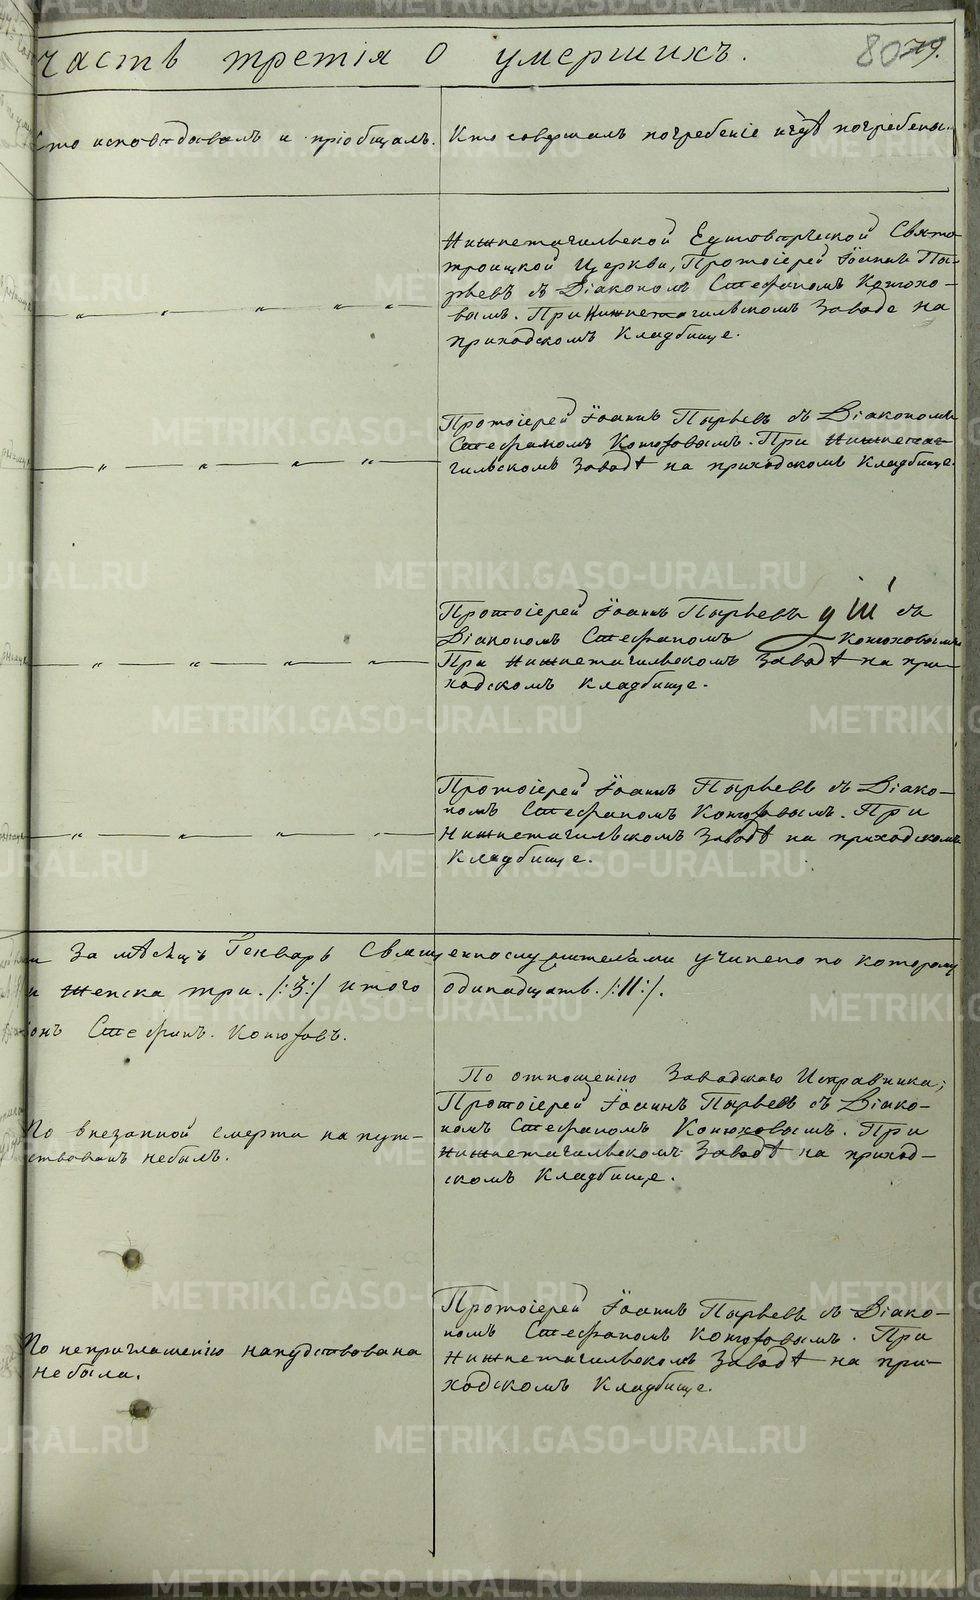 часть третія о умершихъ.
80 79.
Кто исповѣдовалъ и пріобщалъ.
Кто совершалъ погребеніе и гдѣ погребены.
Нижнетагильской Единовѣрческой Свято-
троицкой Церкви, Протоіерей Іоаннъ Пы-
рьевъ съ Діакономъ Стефаномъ Конюхо-
вымъ. При Нижнетагильскомъ Заводе на
приходскомъ Кладбище.
Протоіерей Іоаннъ Пырьевъ съ Діакономъ
Стефаномъ Конюховымъ. При Нижнета-
гильскомъ Заводѣ на приходскомъ Кладбище.
Протоіерей Іоаннъ Пырьевъ съ
Діакономъ Стефаномъ Конюховымъ
При Нижнетагильскомъ Заводѣ на при-
ходскомъ Кладбище.
Протоіерей Іоаннъ Пырьевъ съ Діако-
номъ Стефаномъ Конюховымъ. При
Нижнетагильскомъ Заводѣ на приходскомъ
Кладбище.
За мѣсяцъ Генварь Священнослужителями учинено по которому
и женска три. /:3:/ итого одинадцать. /:11:/.
онъ Стефанъ. Конюховъ.
По внезапной смерти напут-
ствованъ небылъ.
По отношенію Заводскаго Исправника;
Протоіерей Іоаннъ Пырьевъ съ Діако-
номъ Стефаномъ Конюховымъ. При
Нижнетагильскомъ Заводѣ на приход-
скомъ Кладбище.
По неприглашенію напудствована
небыла.
Протоіерей Іоаннъ Пырьевъ съ Діако-
номъ Стефаномъ Конюховымъ. При
Нижнетагильскомъ Заводѣ на при-
ходскомъ Кладбище.
METRIKI.GASO-URAL.RU